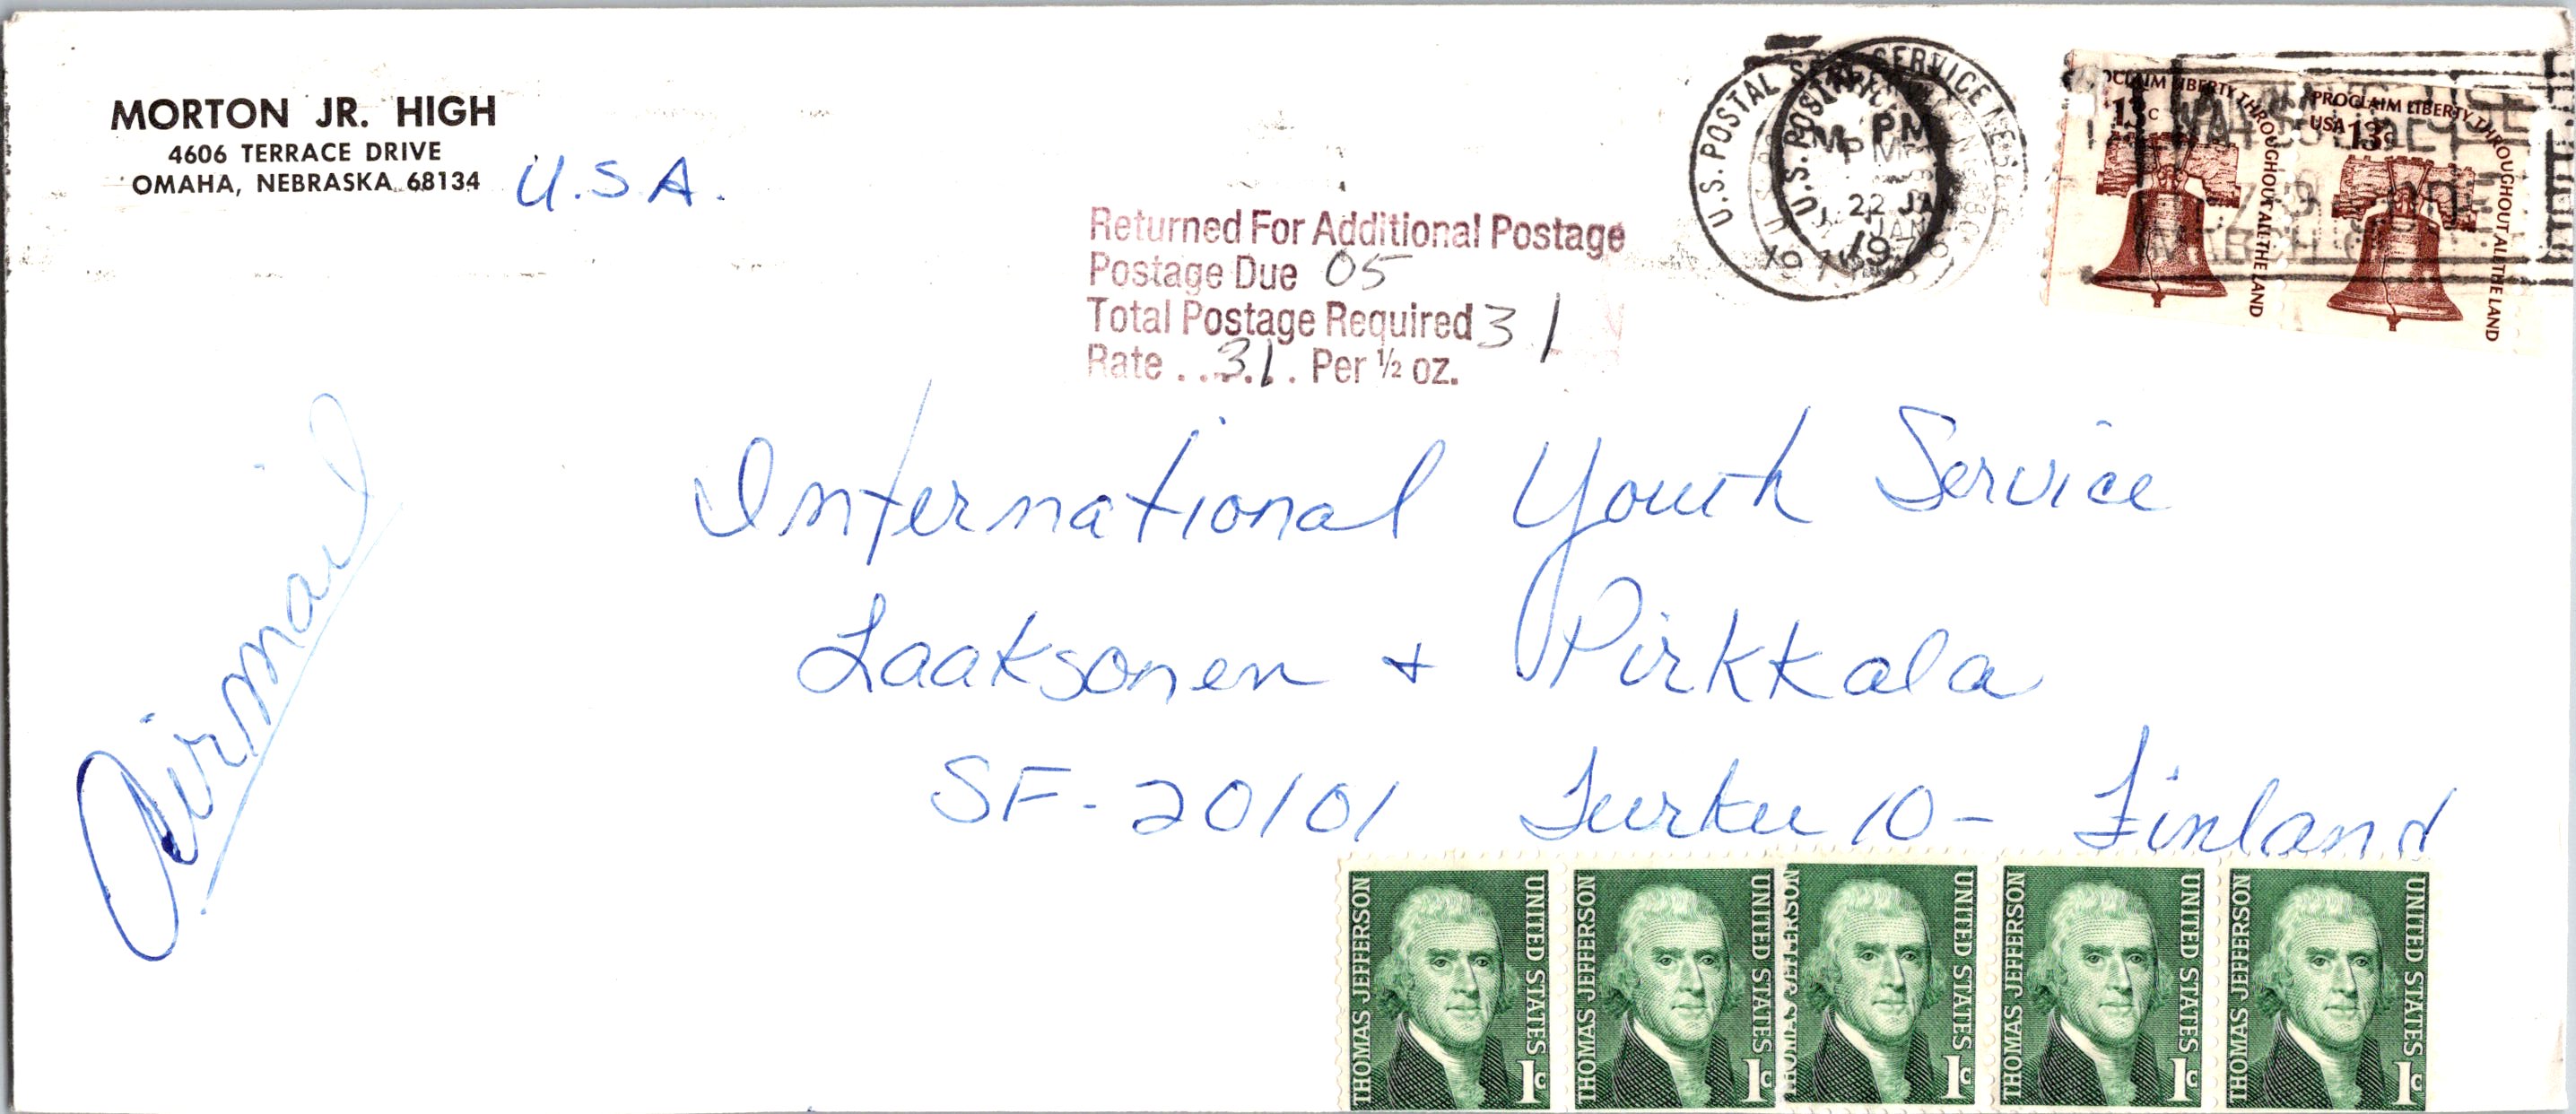 MORTON JR. HIGH
4606 TERRACE DRIVE
OMAHA, NEBRASKA 68134
U.S.A.
Returned For Additional Postage
Postage Due 05
Total Postage Required 31
Rate . . 31 . Per ½ oz.
U.S. POSTAL SERVICE NE
U.S. POSTAL
PM
PM
22 JAN
JAN
197
OCLAIM LIBERTY THROUGHOUT ALL THE LAND
13c
PROCLAIM LIBERTY THROUGHOUT ALL THE LAND
USA 13c
MARCH OF
Airmail
International Youth Service
Laaksonen + Pirkkala
SF-20101 Turku 10 - Finland
THOMAS JEFFERSON UNITED STATES 1c
THOMAS JEFFERSON UNITED STATES 1c
THOMAS JEFFERSON UNITED STATES 1c
THOMAS JEFFERSON UNITED STATES 1c
THOMAS JEFFERSON UNITED STATES 1c